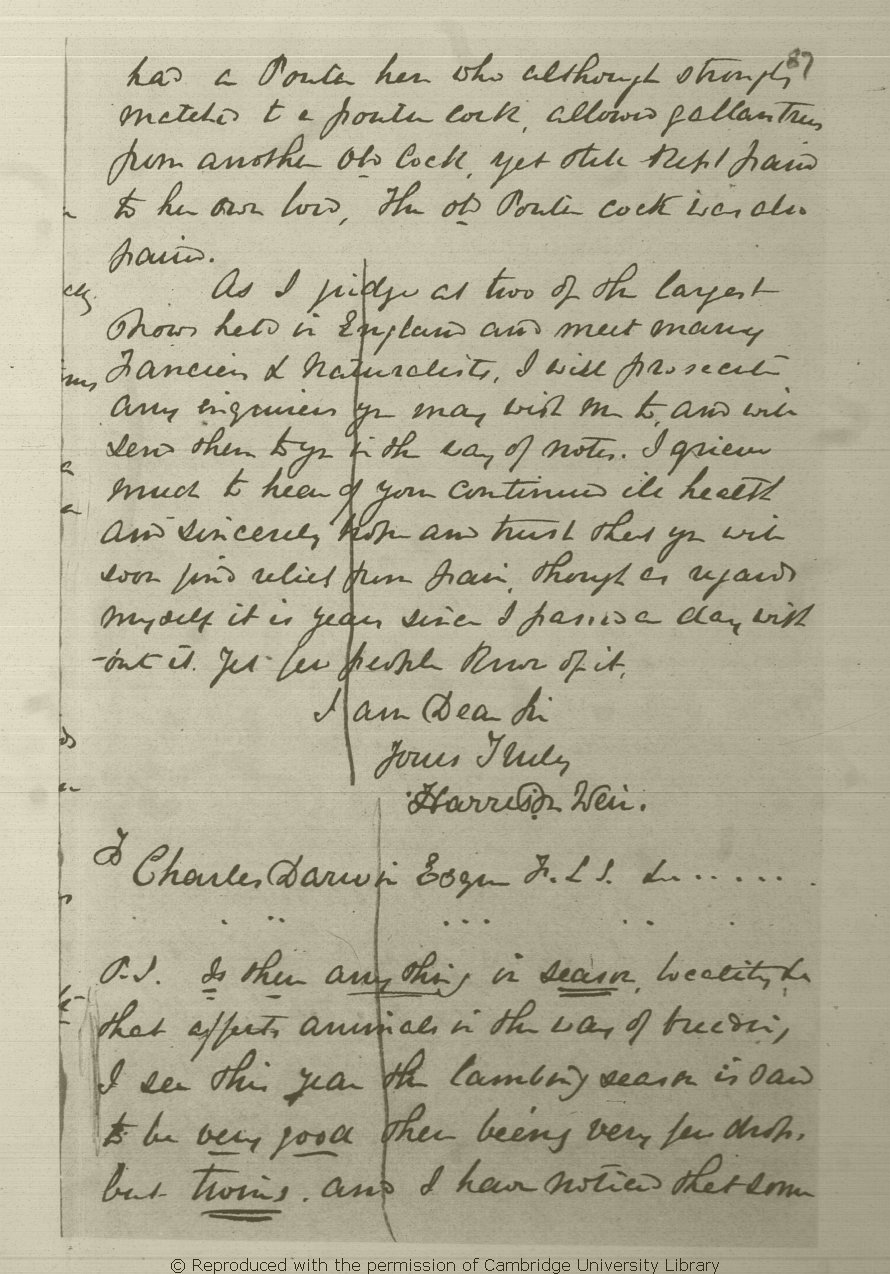 87
had a Pouter hen who although strongly
matched to a pouter cock, allowed gallantries
from another old Cock, yet still kept paired
to her own lord, The old Pouter cock was also
paired.
As I judge at two of the largest
Shows held in England and meet many
Fanciers & Naturalists, I will prosecute
any inquiries you may wish me to, and will
send them to you in the way of notes. I grieve
much to hear of your continued ill health
and sincerely hope and trust that you will
soon find relief from pain, though as regards
myself it is years since I passed a day with
-out it. Yet few people know of it.
I am Dear Sir
Yours Truly
Harrison Weir.
To Charles Darwin Esqre F.L.S. &c......
P.S. Is there anything in season, locality &c
that affects animals in the way of breeding
I see this year the lambing season is said
to be very good there being very few drops.
but twins. and I have noticed that some
© Reproduced with the permission of Cambridge University Library